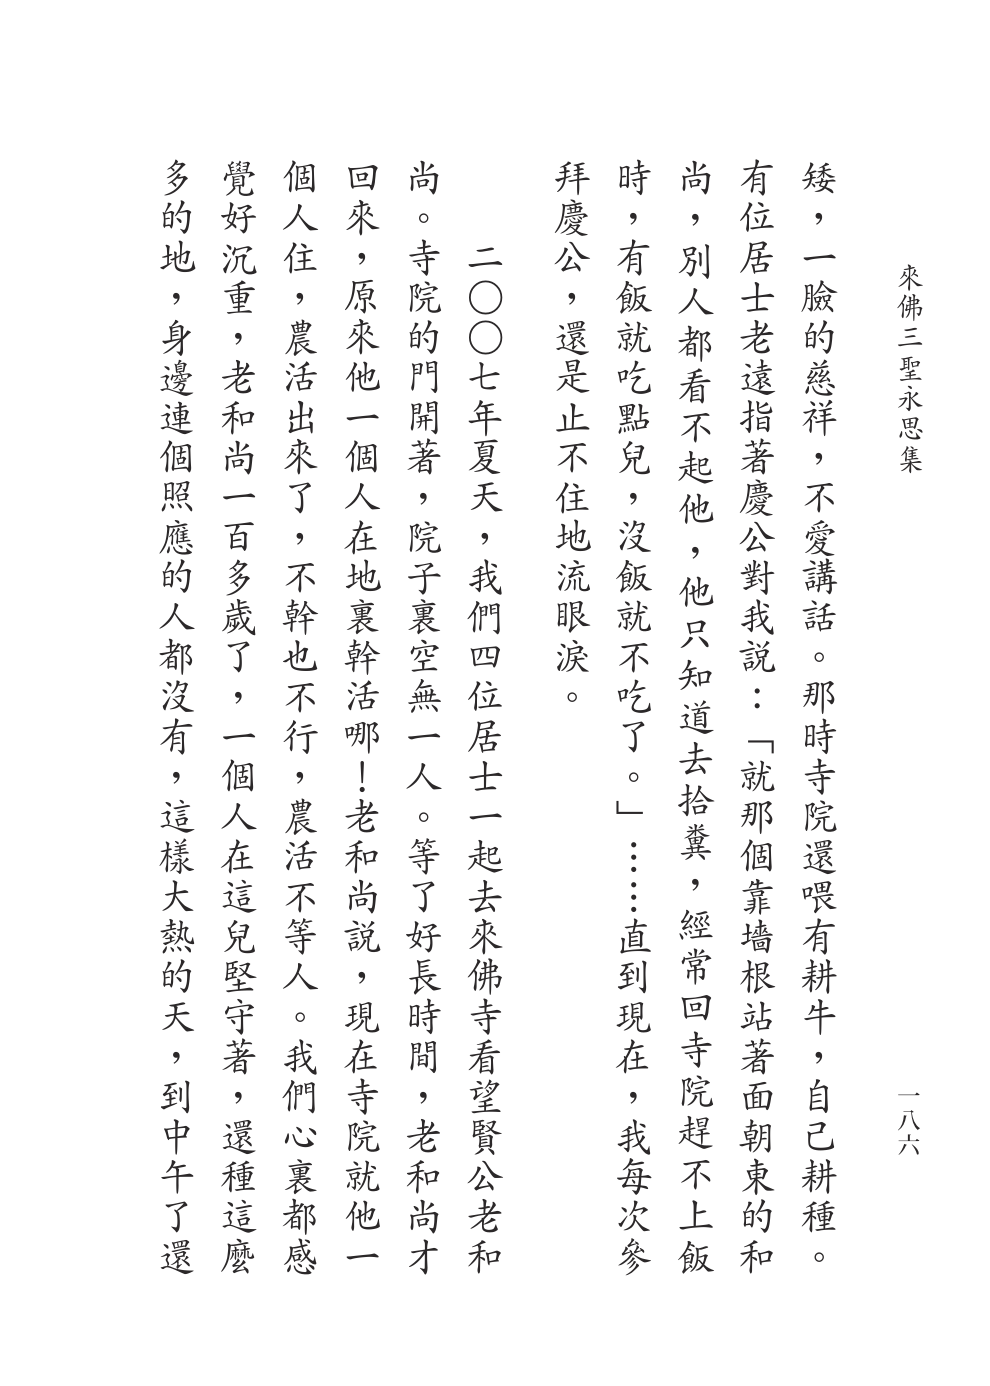 來佛三聖永思集
一八六
矮，一臉的慈祥，不愛講話。那時寺院還喂有耕牛，自己耕種。
有位居士老遠指著慶公對我説：「就那個靠墻根站著面朝東的和
尚，別人都看不起他，他只知道去拾糞，經常回寺院趕不上飯
時，有飯就吃點兒，沒飯就不吃了。」……直到現在，我每次參
拜慶公，還是止不住地流眼淚。
二〇〇七年夏天，我們四位居士一起去來佛寺看望賢公老和
尚。寺院的門開著，院子裏空無一人。等了好長時間，老和尚才
回來，原來他一個人在地裏幹活哪！老和尚説，現在寺院就他一
個人住，農活出來了，不幹也不行，農活不等人。我們心裏都感
覺好沉重，老和尚一百多歲了，一個人在這兒堅守著，還種這麼
多的地，身邊連個照應的人都沒有，這樣大熱的天，到中午了還